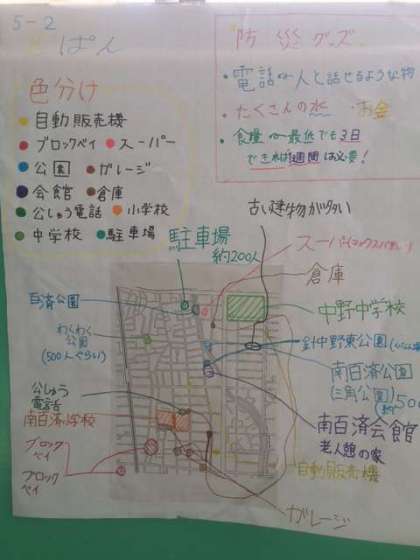 5-2
ぱん
色分け
自動販売機
ブロックベイ スーパー
公園 ガレージ
会館 倉庫
公しゅう電話 小学校
中学校 駐車場
防災グッズ
・電話や人と話せるような物
・たくさんの水 ・お金
・食糧や最低でも3日
できれば1週間は必要!
古い建物が多い
駐車場
約200人
倉庫
百済公園
中野中学校
わくわく
公園
(500人ぐらい)
針中野東公園
南百済公園
(三角公園)
公しゅう
電話
南百済小学校
南百済会館
老人憩の家
ブロック
ベイ
自動販売機
ブロック
ベイ
ガレージ